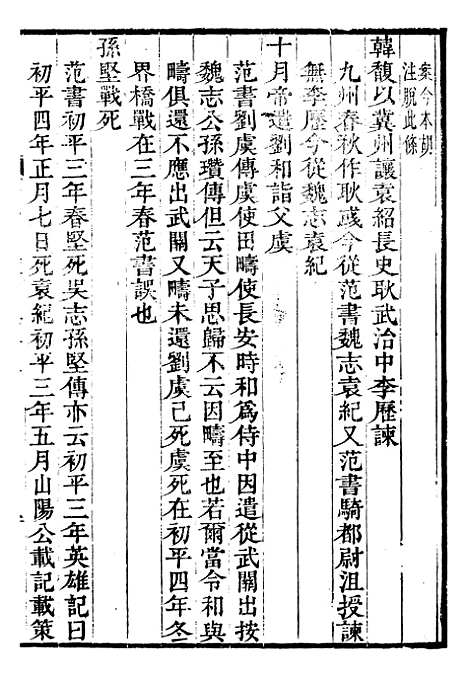 案今本胡
注脫此條
韓馥以冀州讓袁紹長史耿武治中李歷諫
九州春秋作耿彧今從范書魏志袁紀又范書騎都尉沮授諫
無李歷今從魏志袁紀
十月帝遣劉和詣父虞
范書劉虞傳虞使田疇使長安時和爲侍中因遣從武關出按
魏志公孫瓚傳但云天子思歸不云因疇至也若爾當令和與
疇俱還不應出武關又疇未還劉虞已死虞死在初平四年冬
界橋戰在三年春范書誤也
孫堅戰死
范書初平三年春堅死吳志孫堅傳亦云初平三年英雄記曰
初平四年正月七日死袁紀初平三年五月山陽公載記載策